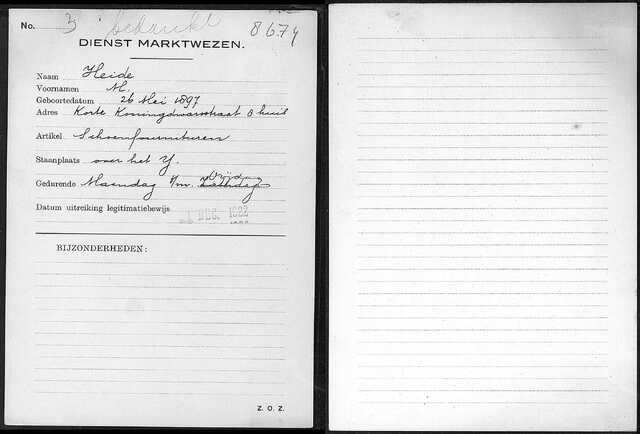 No. 3 bedankt 8674
DIENST MARKTWEZEN.
Naam Heide
Voornamen M.
Geboortedatum 26 Mei 1897
Adres Korte Koningdwarsstraat 8 huis
Artikel Schoenfournituren
Staanplaats over het Y.
Gedurende Maandag t/m. Zaterdag Vrijdag
Datum uitreiking legitimatiebewijs DEC. 1922
BIJZONDERHEDEN:
Z. O. Z.